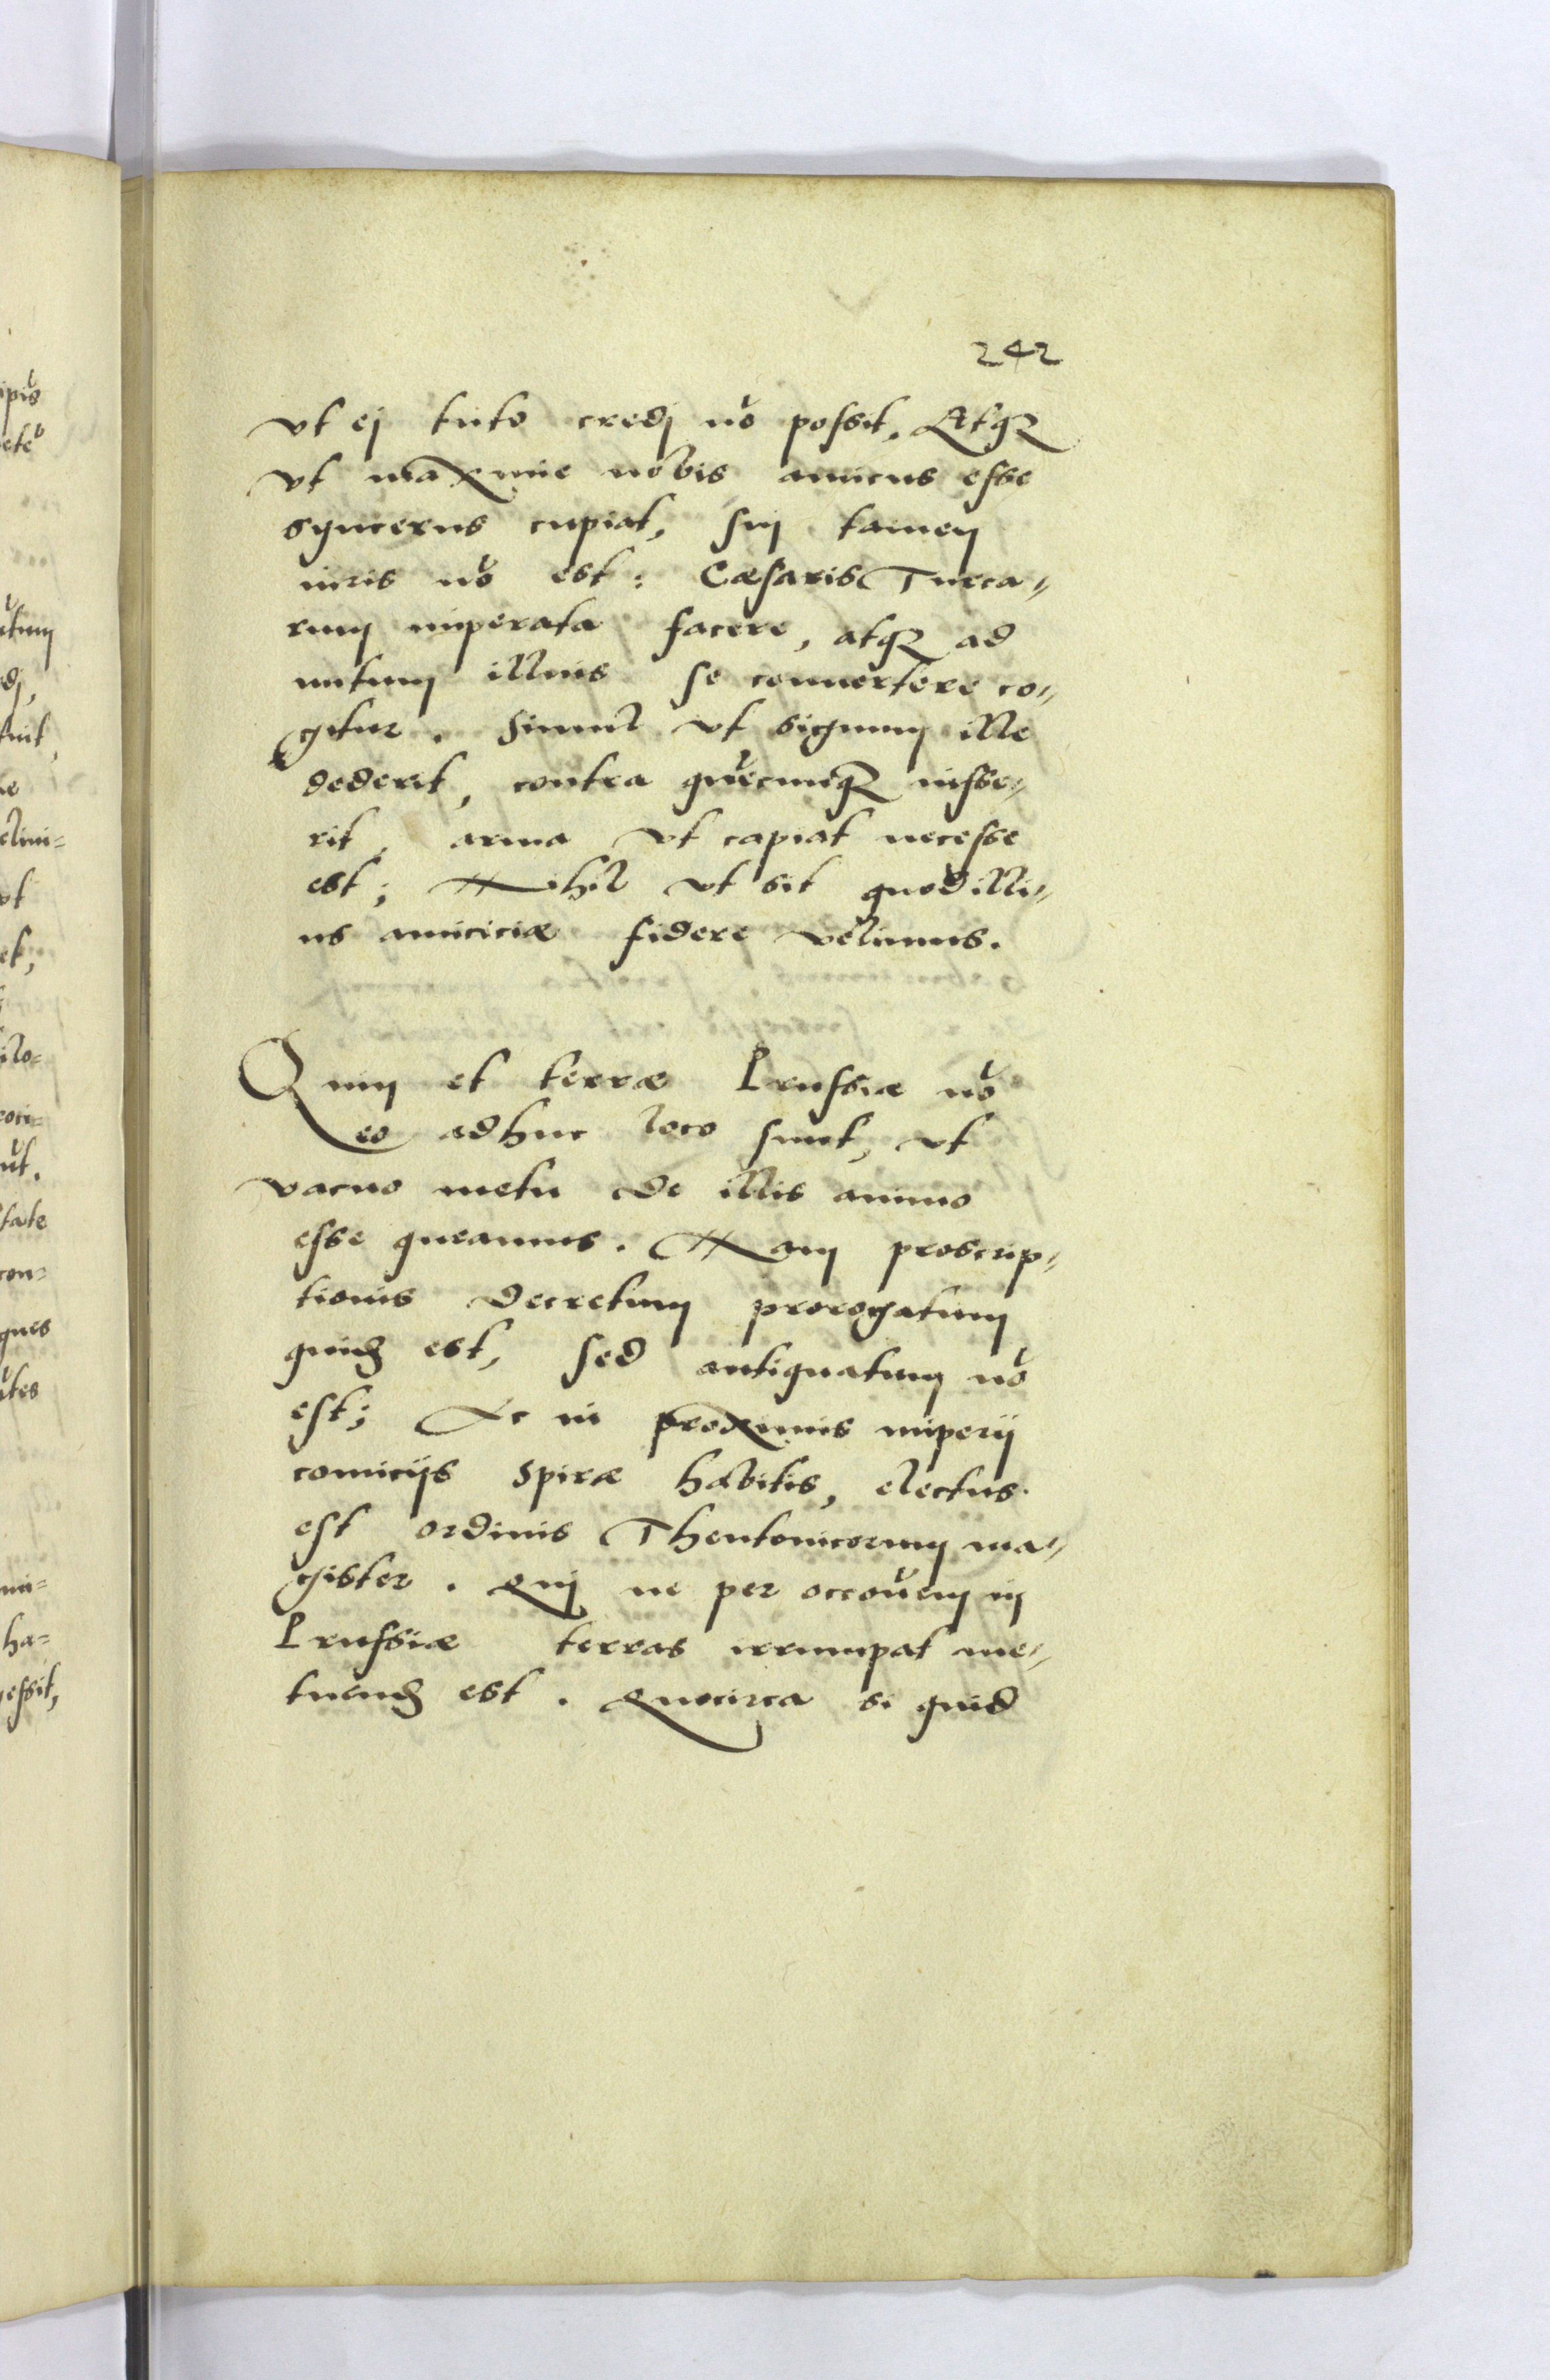 242
vt ej tuto credj nō possit. Atqꝫ
vt maxime nobis amicus esse
syncerus cupiat, suj tamen
iuris nō est: Cæsaris Turca-
rum imperata facere, atqꝫ ad
nutum illius se conuertere co-
gitur. Simul vt signum ille
dederit, contra quēcunqꝫ iusse-
rit, arma vt capiat necesse
est; Nihil vt sit quod illi-
us amiciciæ fidere velimus.
Quin et terræ Prussiæ nō
eo adhuc loco sunt, vt
vacuo metu de illis animo
esse queamus. Nam proscrip-
tionis decretum prorogatum
quidꝫ est, sed antiquatum nō
est; Ac in proximis imperij
comicijs Spiræ habitis, electus
est ordinis Theutonicorum ma-
gister. Quj ne per occōnem in
Prussiæ terras irrumpat me-
tuendꝫ est. Quocirca si quid